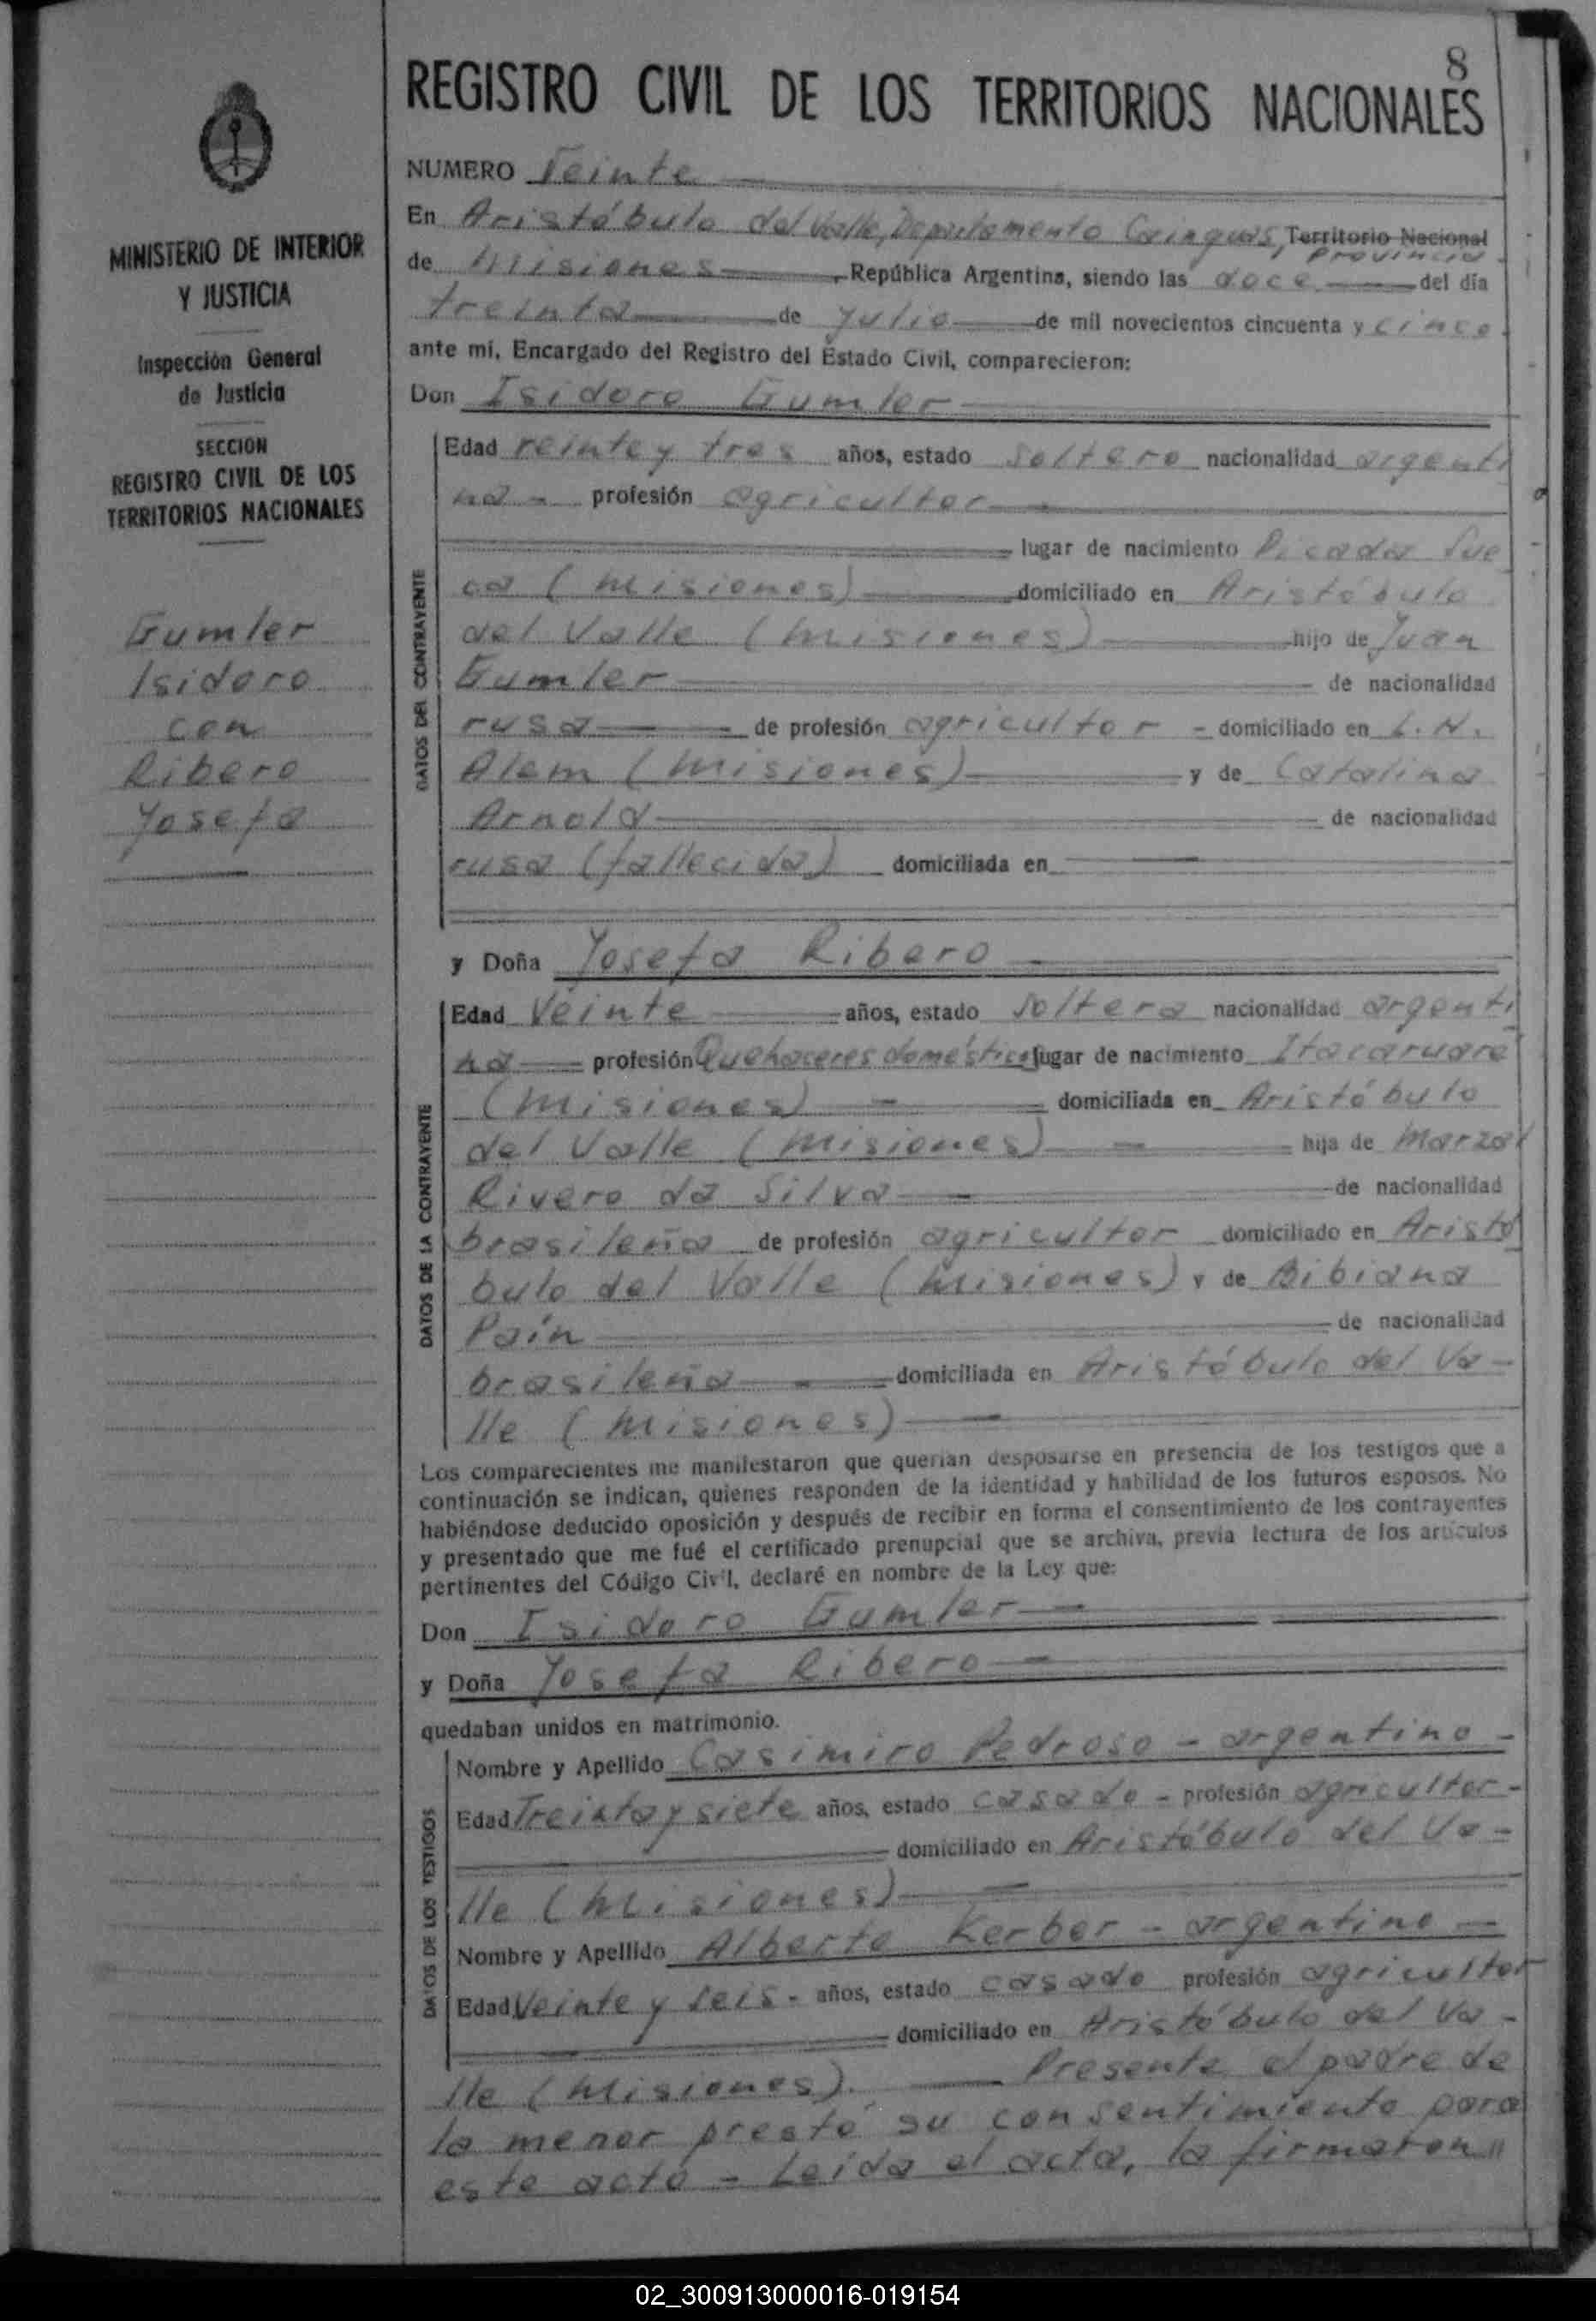 8
REGISTRO CIVIL DE LOS TERRITORIOS NACIONALES
MINISTERIO DE INTERIOR
Y JUSTICIA
Inspección General
de Justicia
SECCION
REGISTRO CIVIL DE LOS
TERRITORIOS NACIONALES
Gumler
Isidoro
con
Ribero
Josefa
NUMERO Veinte
En Aristóbulo del Valle, Departamento Cainguás, Territorio Nacional
Provincia
de Misiones, República Argentina, siendo las doce del día
treinta de Julio de mil novecientos cincuenta y cinco
ante mi, Encargado del Registro del Estado Civil, comparecieron:
Don Isidoro Gumler
DATOS DEL CONTRAYENTE
Edad veinte y tres años, estado soltero nacionalidad argenti
na - profesión agricultor
lugar de nacimiento Picada Sue
ca (Misiones) domiciliado en Aristóbulo
del Valle (Misiones) hijo de Juan
Gumler de nacionalidad
rusa de profesión agricultor - domiciliado en L. N.
Alem (Misiones) y de Catalina
Arnold de nacionalidad
rusa (fallecida) domiciliada en
y Doña Josefa Ribero
DATOS DE LA CONTRAYENTE
Edad Veinte años, estado soltera nacionalidad argenti
na profesión Quehaceres domésticos lugar de nacimiento Itacaruaré
(Misiones) domiciliada en Aristóbulo
del Valle (Misiones) hija de Marzal
Rivero da Silva de nacionalidad
brasileña de profesión agricultor domiciliado en Aristó
bulo del Valle (Misiones) y de Bibiana
Paín de nacionalidad
brasileña domiciliada en Aristóbulo del Va-
lle (Misiones)
Los comparecientes me manifestaron que querían desposarse en presencia de los testigos que a
continuación se indican, quienes responden de la identidad y habilidad de los futuros esposos. No
habiéndose deducido oposición y después de recibir en forma el consentimiento de los contrayentes
y presentado que me fué el certificado prenupcial que se archiva, previa lectura de los artículos
pertinentes del Código Civil, declaré en nombre de la Ley que:
Don Isidoro Gumler
y Doña Josefa Ribero
quedaban unidos en matrimonio.
DATOS DE LOS TESTIGOS
Nombre y Apellido Casimiro Pedroso - argentino -
Edad Treinta y siete años, estado casado - profesión agricultor -
domiciliado en Aristóbulo del Va-
lle (Misiones)
Nombre y Apellido Alberto Kerber - argentino
Edad Veinte y seis - años, estado casado profesión agricultor
domiciliado en Aristóbulo del Va-
lle (Misiones). Presente el padre de
la menor prestó su consentimiento para
este acto - Leída el acta, la firmaron"
02_300913000016-019154